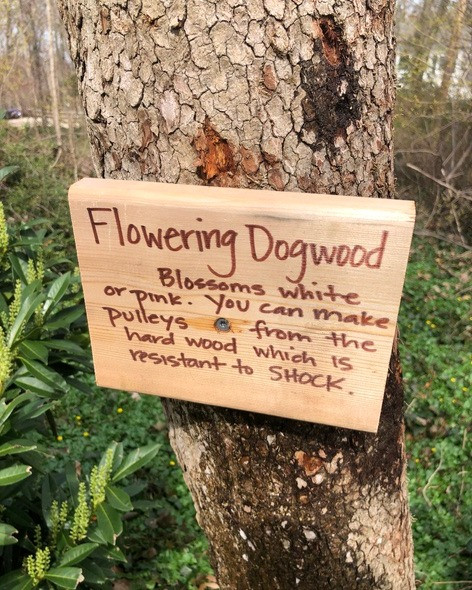 Flowering Dogwood
Blossoms white
or pink. You can make
pulleys from the
hard wood which is
resistant to SHOCK.